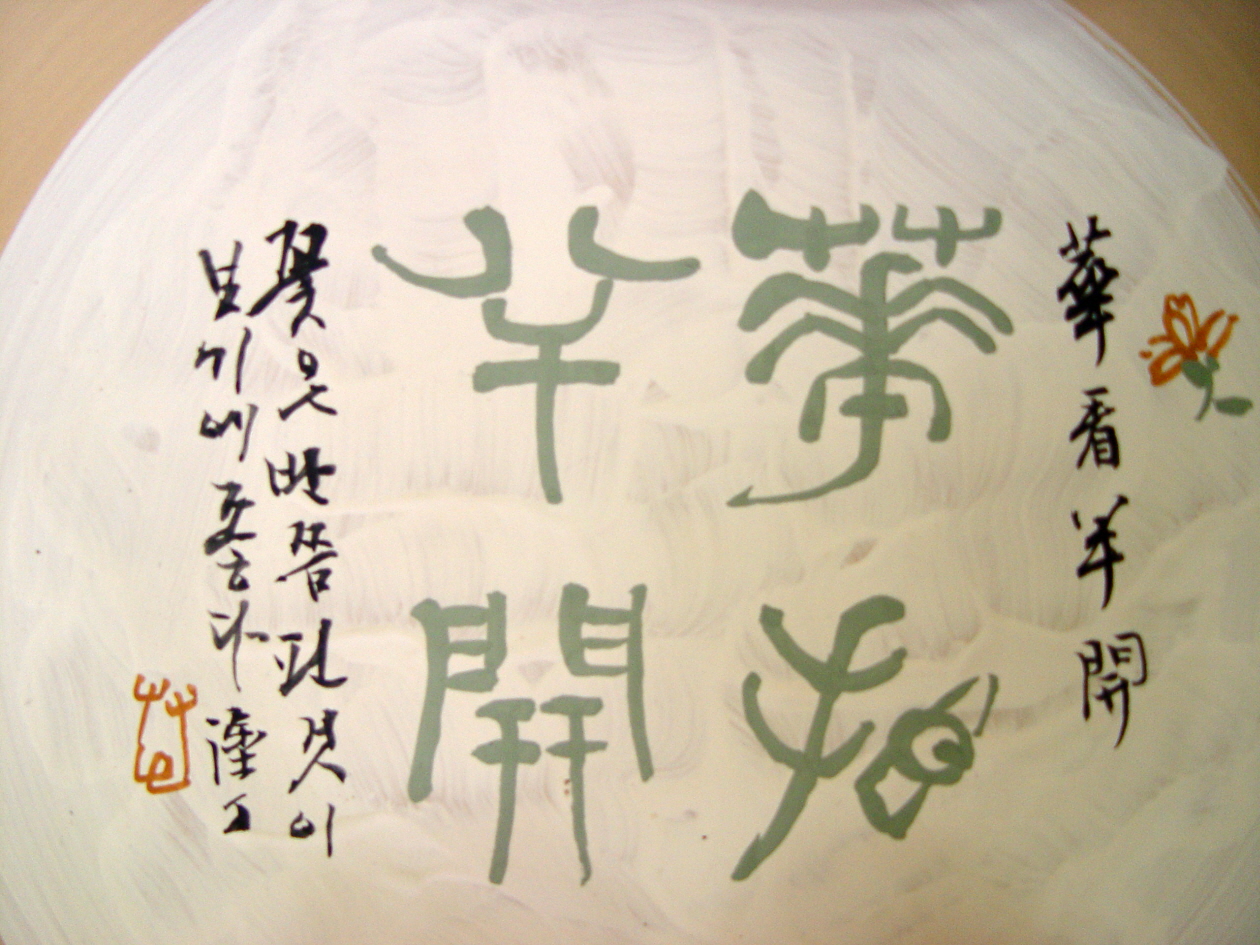 華看半開
華看
半開
꽃은 반쯤 핀 것이
보기에 좋다